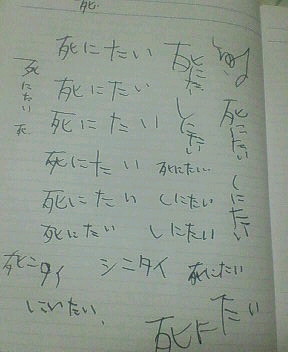 死
死にたい
死にたい
死にたい
死にたい
死にたい
死にたい
死
死にたい
死にたい
死にたい
しにたい
しにたい
死にたい
死にたい
しにたい
死にたい
しにたい
死ニタイ
シニタイ
死にたい
しにいたい、
死にたい